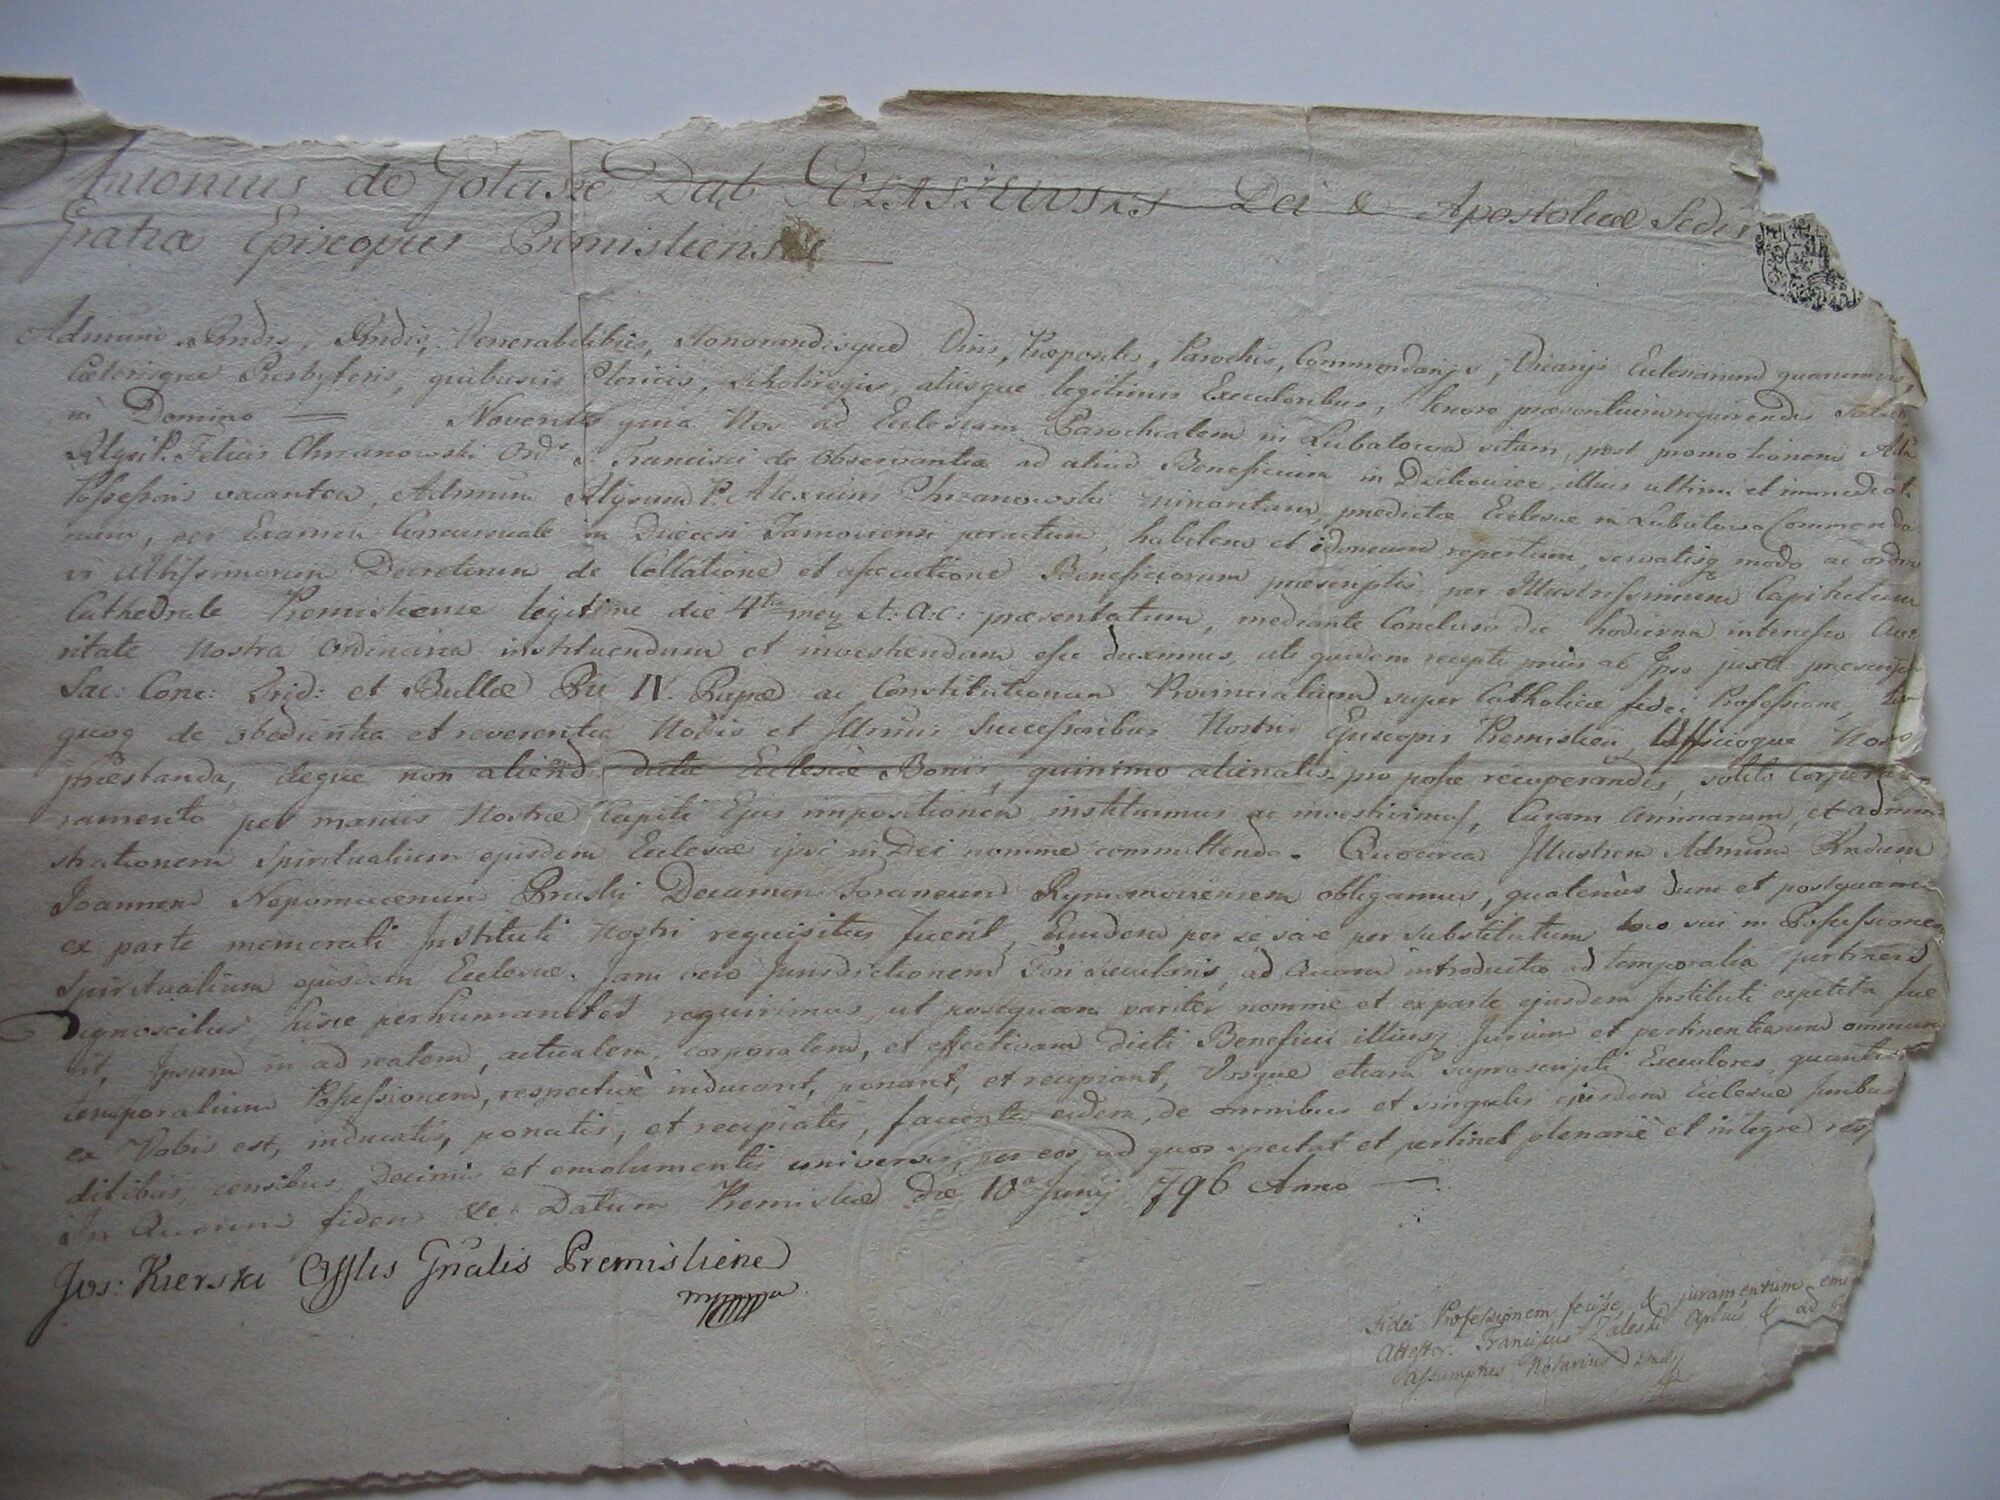 Antonius de Gotusie Dąb GOŁASZEWSKI Dei & Apostolicae Sedis
Gratia Episcopus Premisliensis
Admum Rndis, Rndis, Venerabilibus, Honorandisque Dnis, Praepositis, Parochis, Commendarijs, Vicarijs Ecclesiarum quarumvis,
Caeterisque Presbyteris, quibusvis Clericis, aliisque legitimis Executoribus, tenore praesentium requirendis Salutem
in Domino Noveritis quia Nos ad Ecclesiam Parochialem in Lubatowa sitam, post promotionem Adm
R. P. Felicis Chrzanowski Ord: S. Francisci de Observantia ad aliud Beneficium in illius ultimi et immediati
Possessoris vacantem, Admum P. Alexium Chrzanowski praedictae Ecclesiae in Lubatowa Commenda
rium, per Examen Concursuale in Diaecesi Tarnoviensi peractum, habilem et idoneum repertum, servatisq modo ac ordine
vi Altissimorum Decretorum de Collatione et Beneficiorum praescriptis, per Illustrissimum Capitulum
Cathedrale Premisliense legitime die 4ta A: C: praesentatum, mediante Concluso die hodierna Auto
ritate Nostra Ordinaria instituendum et investiendum esse duximus, uti quidem recepta prius ab Ipso juxta praescripta
Sac: Conc: Trid: et Bullae Pii IV. Papae ac Constitutionum Provincialium super Catholicae fidei Professione,
quoq de obedientia et reverentia Nobis et Successoribus Nostris Episcopis Premislien, Officioque Nostro
praestanda, deque non aliendis dictae Ecclesiae Bonis, quinimo alienatis pro posse recuperandis, solito Corporali
ramento per manus Nostrae Capiti Ejus impositionem instituimus ac investivimus, Curam animarum, et admini
strationem Spiritualium ejusdem Ecclesiae ipsi in Dei nomine committendo. Quocirca Illustrem Admum Rndum
Joannem Nepomucenum Decanum Foraneum Rymanoviensem obligamus, quatenus dum et postquam
ex parte memorati Instituti Nostri requisitus fuerit, Eundem per se sive per substitutum loco sui in Possessionem
Spiritualium ejusdem Ecclesiae. Jam vero Jurisdictionem Fori saecularis, ad quam introductio ad temporalia pertinere
dignoscitur, hisce perhumaniter requirimus, ut postquam pariter nomine et ex parte ejusdem Instituti expetita fue
rit, Ipsum in ad realem, actualem, corporalem, et effectivam dicti Beneficii illiusq Jurium et pertinentiarum omnium
temporalium Possessionem, respective inducant, ponant, et recipiant, Vosque etiam suprascripti Executores, quantum
ex Vobis est, inducatis, ponatis, et recipiatis, facientes eidem, de omnibus et singulis ejusdem Ecclesiae fructibus
ditibus, censibus, Decimis et emolumentis universis, per eos ad quos spectat et pertinet plenarie et integre res
In Quorum fidem &c. Datum Premisliae Die 10a Junij 796 Anno
Jos: Kierski Offlis Gnalis Premisliens
Fidei Professionem fecisse, & juramentum emi
Attestor. Franciscus Zaleski Aplicus & ad
assumptus Notarius